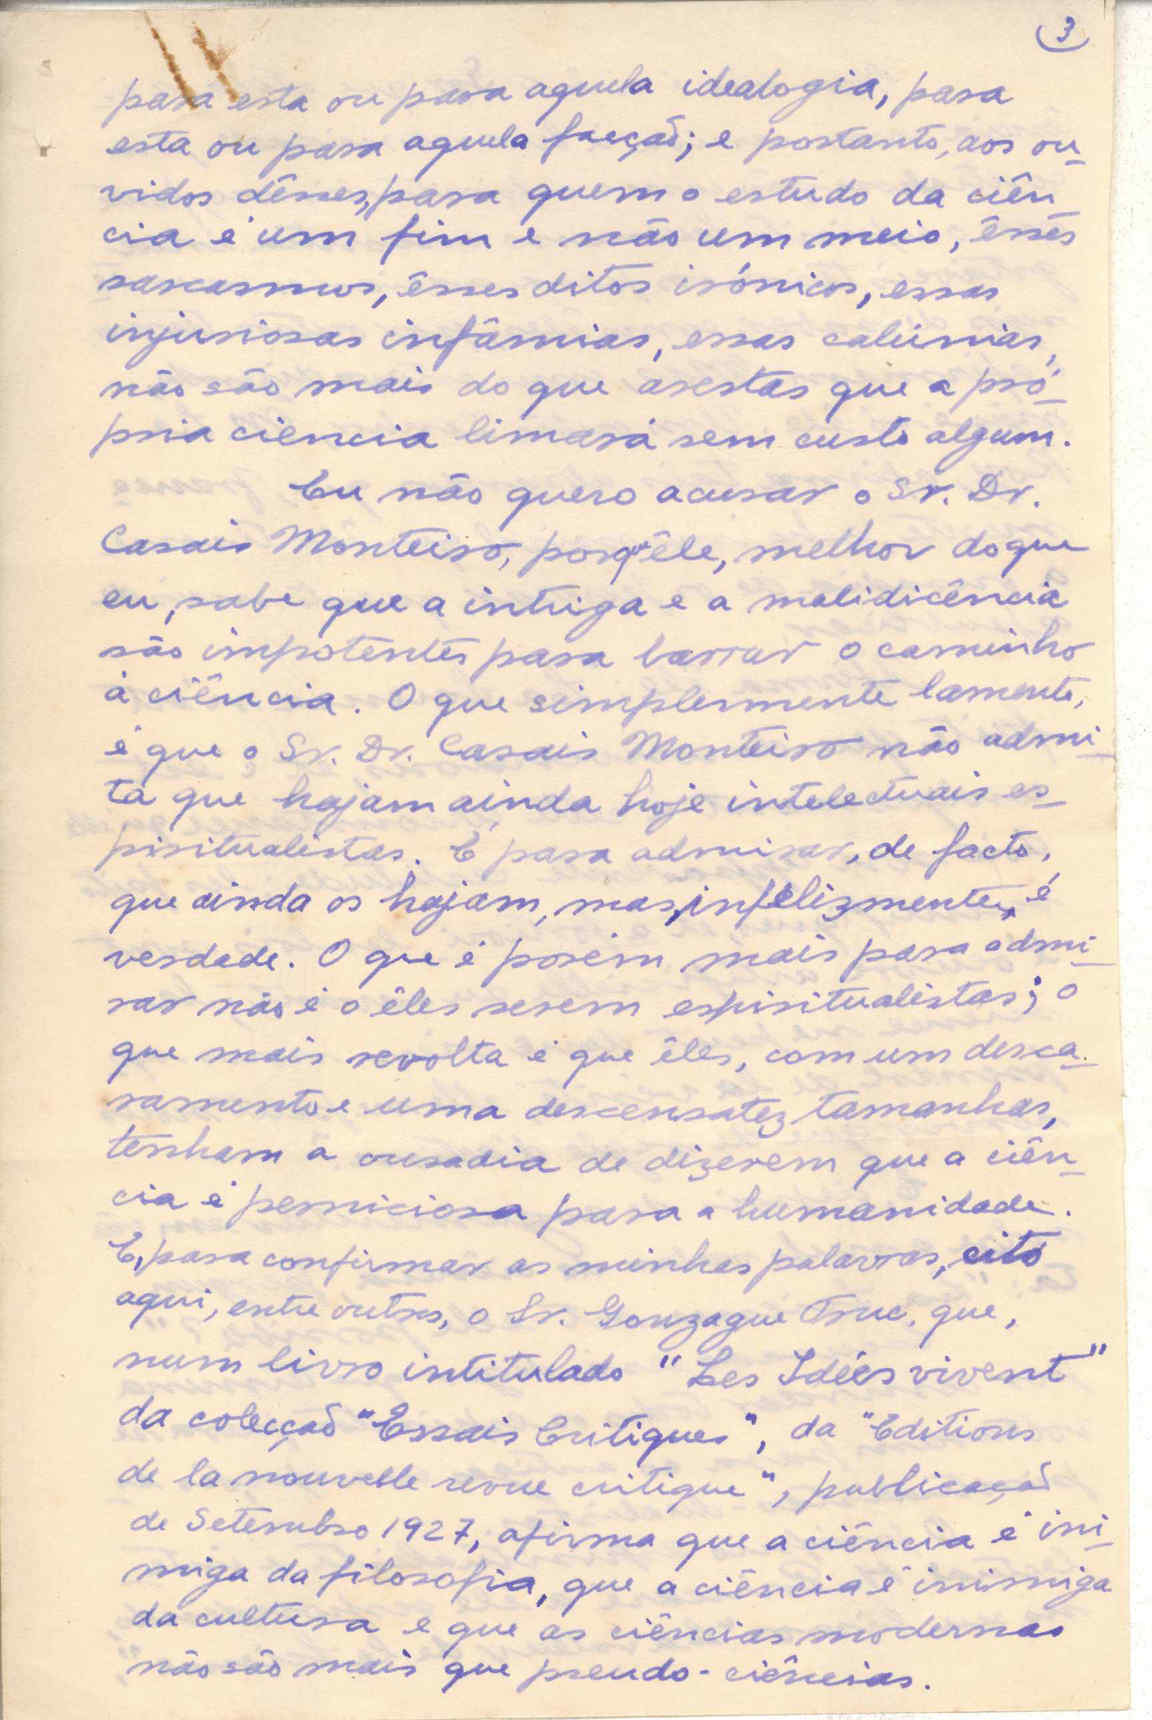 3
para esta ou para aquela idealogia, para
esta ou para aquela facção; e portanto, aos ou-
vidos dêsses, para quem o estudo da ciên-
cia é um fim e não um meio, êsses
sarcasmos, êsses ditos irónicos, essas
injuriosas infâmias, essas calúnias,
não são mais do que arestas que a pró-
pria ciencia limará sem custo algum.
Eu não quero acusar o Sr. Dr.
Casais Monteiro, porq' êle, melhor do que
eu, sabe que a intriga e a malidicência
são impotentes para barrar o caminho
á ciência. O que simplesmente lamento,
é que o Sr. Dr. Casais Monteiro não admi-
ta que hajam ainda hoje intelectuais es-
piritualistas. É para admirar, de facto,
que ainda os hajam, mas, infelizmente, é
verdade. O que é porém mais para admi-
rar não é o êles serem espiritualistas; o
que mais revolta é que êles, com um desca-
ramento e uma descensatez tamanhas,
tenham a ousadia de dizerem que a ciên-
cia é perniciosa para a humanidade.
E, para confirmar as minhas palavras, cito
aqui, entre outros, o Sr. Gonzague Truc, que,
num livro intitulado "Les Idées vivent"
da colecção "Essais Critiques", da "Editions
de la nouvelle revue critique", publicação
de Setembro 1927, afirma que a ciência é ini-
miga da filosofia, que a ciência é inimiga
da cultura e que as ciências modernas
não são mais que pseudo-ciências.